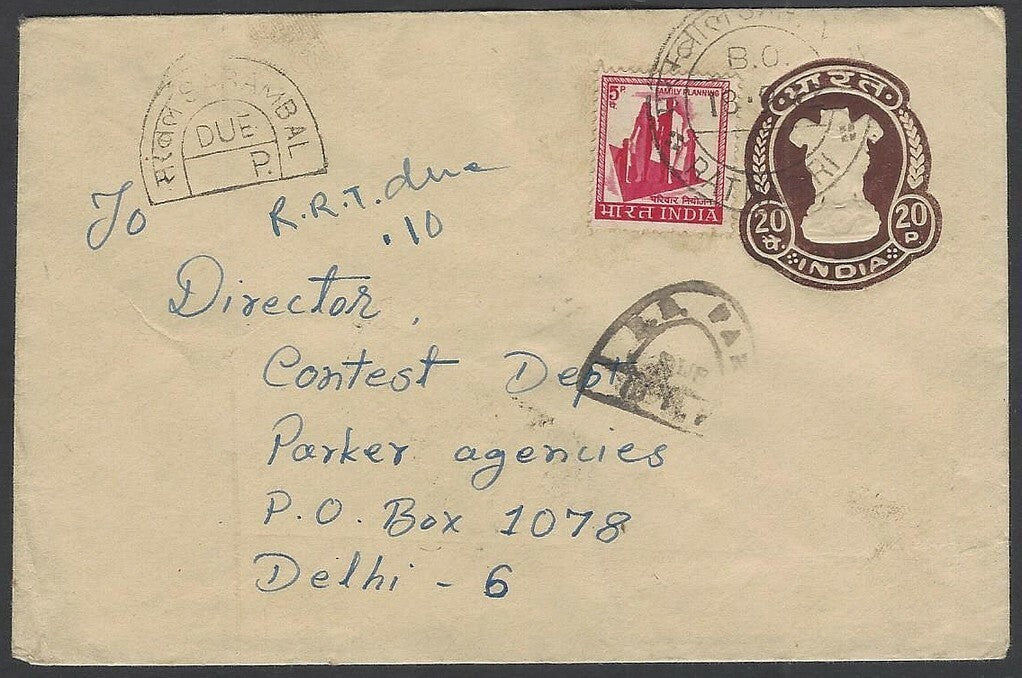 SARAMBAL
DUE
P.
B.O.
18
5 P
पै.
FAMILY PLANNING
परिवार नियोजन
भारत INDIA
भारत
20 पै.
20 P.
INDIA
To
R.R.T. due
.10
Director,
Contest Dept
Parker agencies
P.O. Box 1078
Delhi - 6
DUE